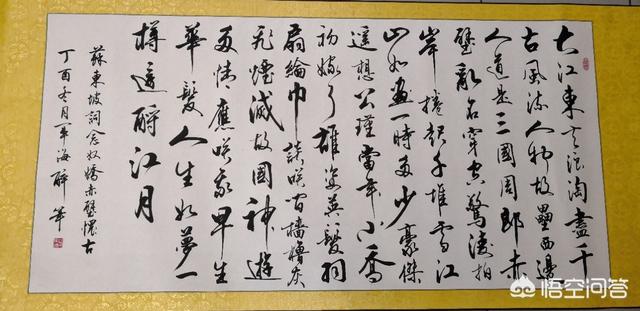 大江東去浪淘盡千
古風流人物故壘西邊
人道是三國周郎赤
壁亂石穿空驚濤拍
岸捲起千堆雪江
山如畫一時多少豪傑
遙想公瑾當年小喬
初嫁了雄姿英髮羽
扇綸巾談笑間檣櫓灰
飛煙滅故國神遊
多情應笑我早生
華髮人生如夢一
樽還酹江月
蘇東坡詞念奴嬌赤壁懷古
丁酉冬月平海醉筆
悟空问答